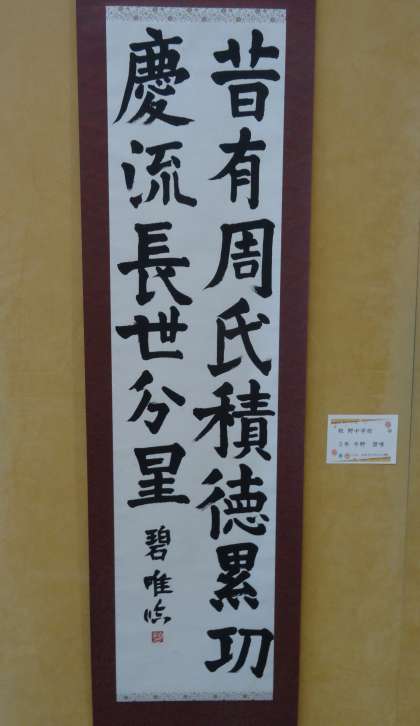 昔有周氏積徳累功
慶流長世分星
碧唯臨
野中学校